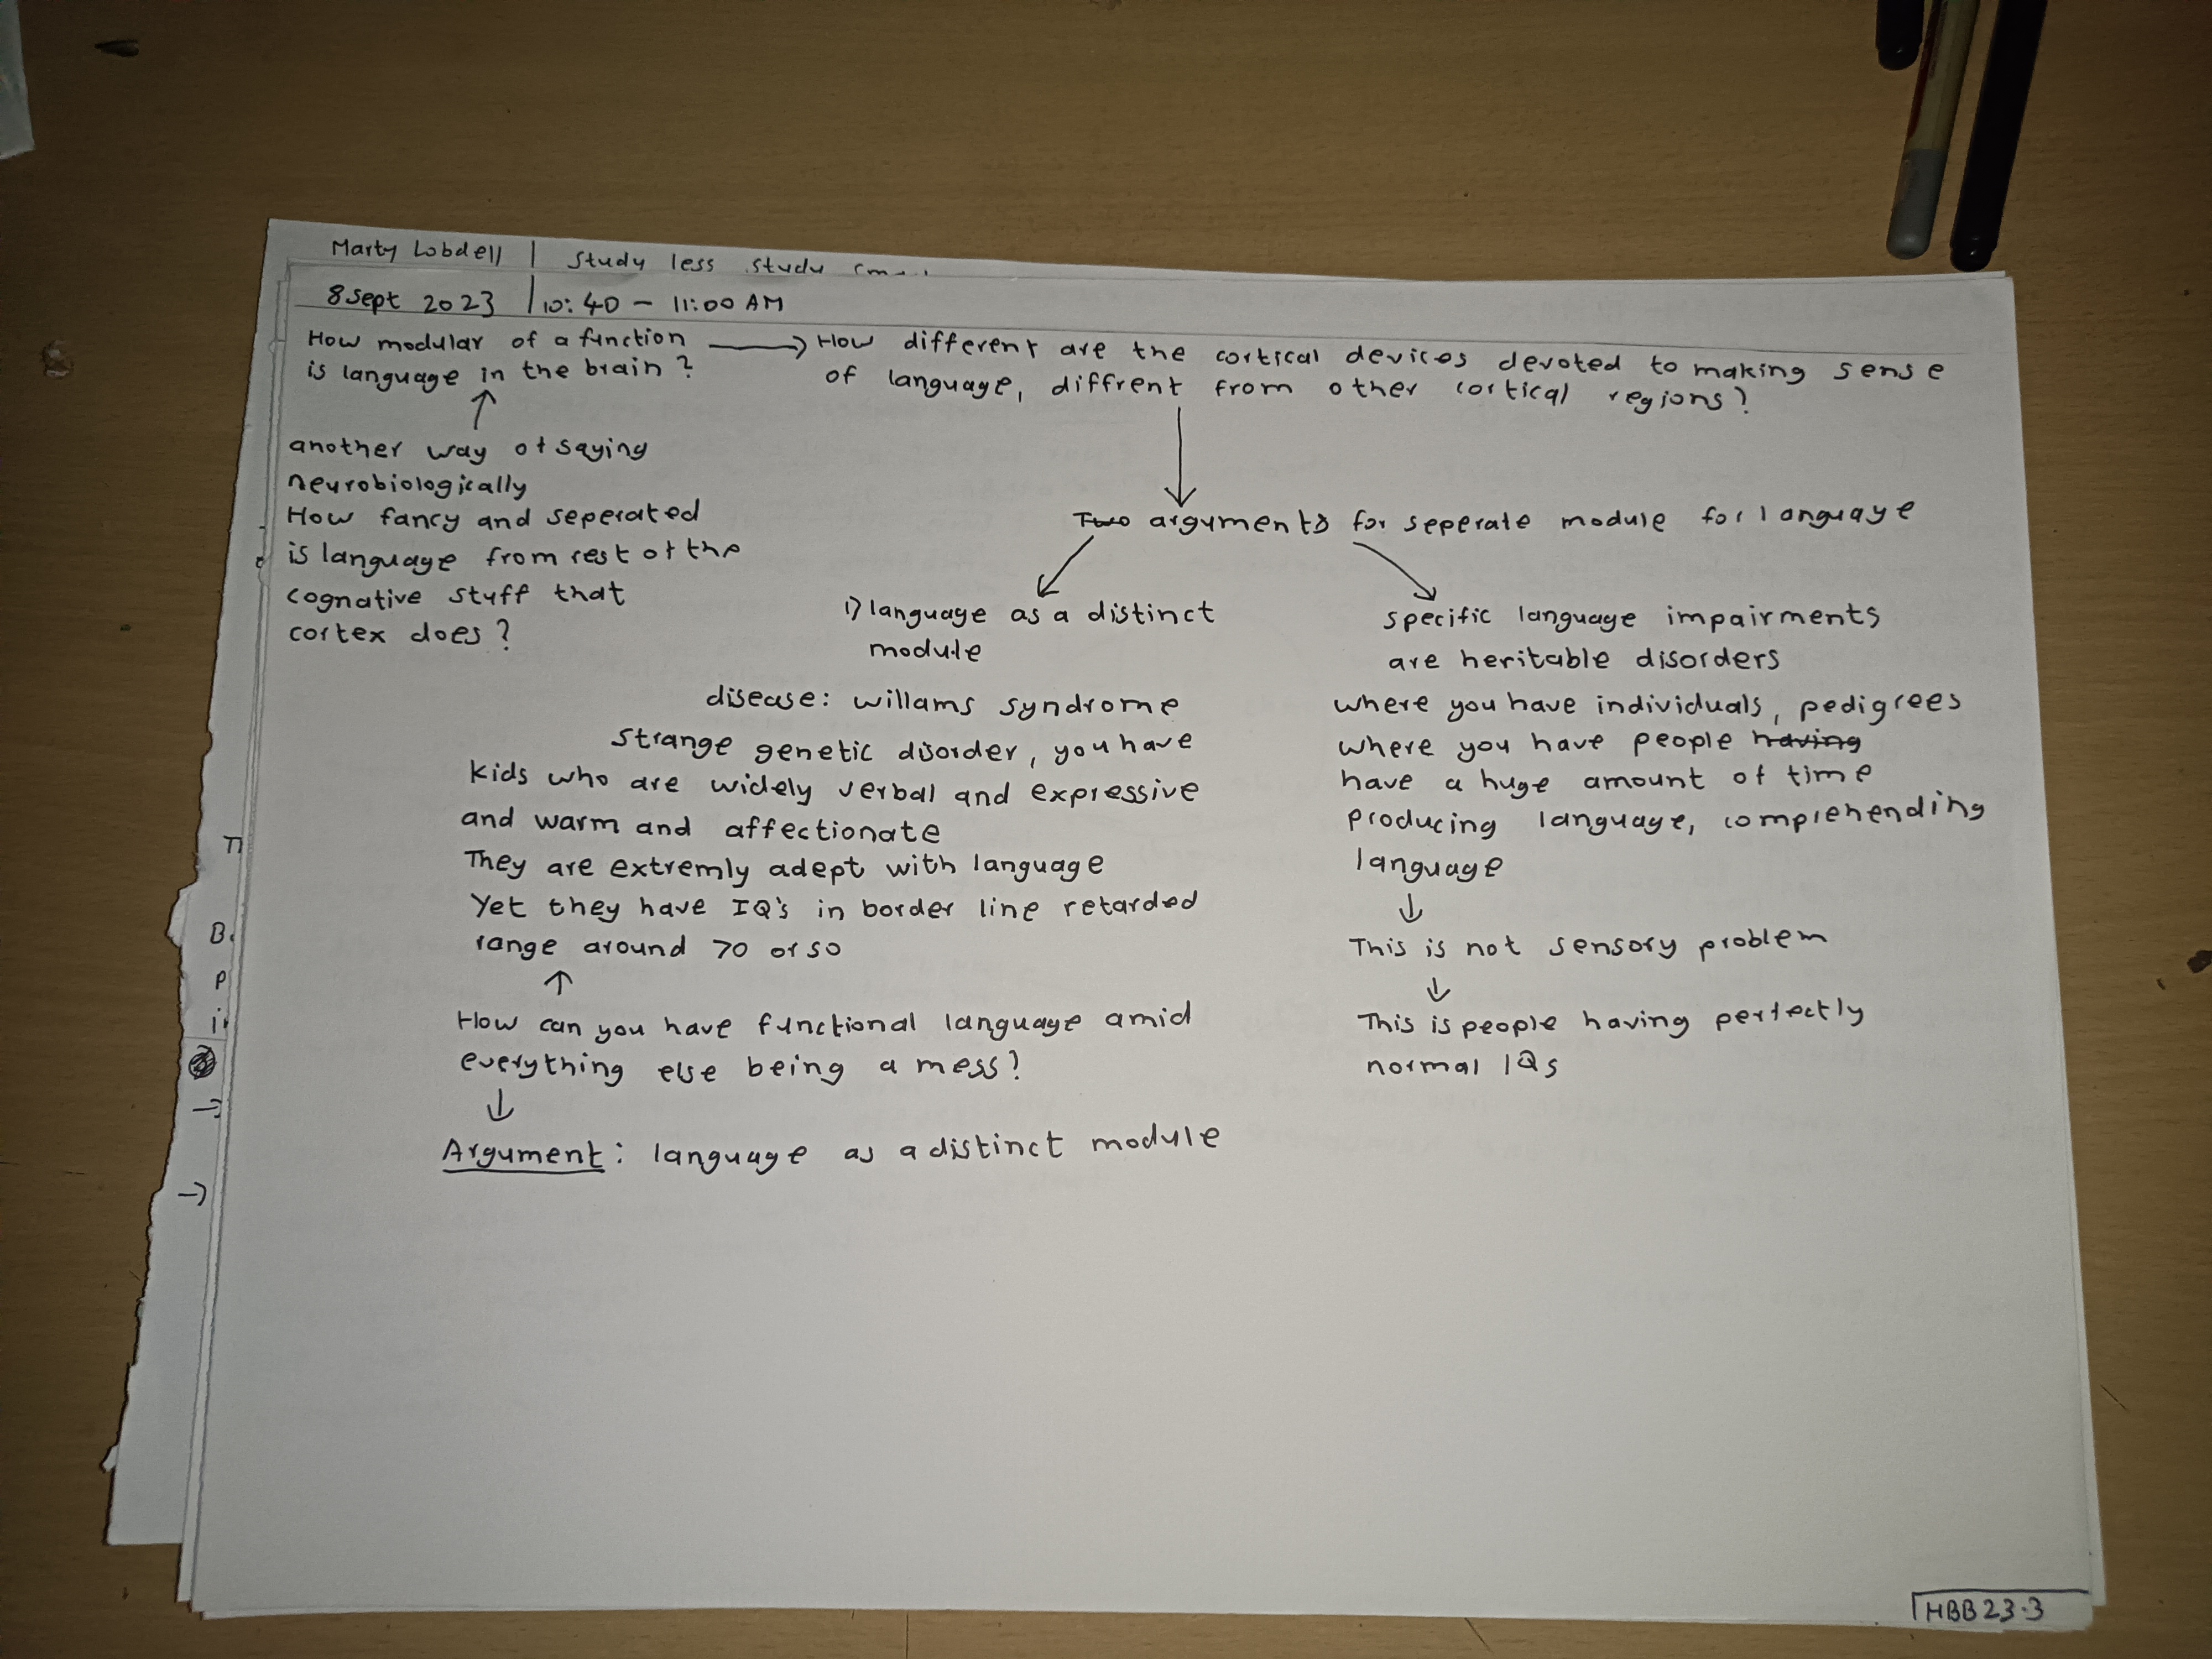 Marty Lobdell | Study less study
8 Sept 2023 | 10:40 - 11:00 AM
How modular of a function
is language in the brain?
→ How different are the cortical devices devoted to making sense
of language, diffrent from other cortical regions?
another way of saying
neurobiologically
How fancy and seperated
is language from rest of the
cognative stuff that
cortex does?
Two arguments for seperate module for language
1) language as a distinct
module
disease: willams syndrome
strange genetic disorder, you have
kids who are widely verbal and expressive
and warm and affectionate
They are extremly adept with language
Yet they have IQ's in border line retarded
range around 70 or so
How can you have functional language amid
everything else being a mess?
Argument: language as a distinct module
specific language impairments
are heritable disorders
where you have individuals, pedigrees
where you have people having
have a huge amount of time
producing language, comprehending
language
This is not sensory problem
This is people having perfectly
normal IQs
HBB23.3